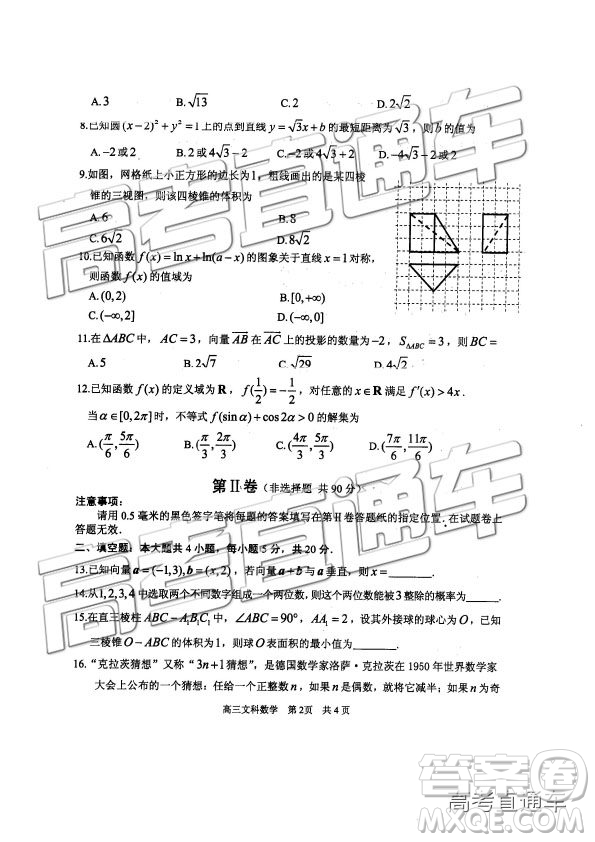 A.3 B.√13 C.2 D.2√2
8.已知圆(x-2)²+y²=1上的点到直线y=√3x+b的最短距离为√3，则b的值为
A.-2或2 B.2或4√3-2 C.-2或4√3+2 D.-4√3-2或2
9.如图，网格纸上小正方形的边长为1，粗线画出的是某四棱
锥的三视图，则该四棱锥的体积为
A.6 B.8
C.6√2 D.8√2
10.已知函数f(x)=lnx+ln(a-x)的图象关于直线x=1对称，
则函数f(x)的值域为
A.(0,2) B.[0,+∞)
C.(-∞,2] D.(-∞,0]
11.在△ABC中，AC=3，向量AB在AC上的投影的数量为-2，S△ABC=3，则BC=
A.5 B.2√7 C.√29 D.4√2
12.已知函数f(x)的定义域为R，f(1/2)=-1/2，对任意的x∈R满足f′(x)>4x.
当α∈[0,2π]时，不等式f(sinα)+cos2α>0的解集为
A.(π/6,5π/6) B.(π/3,2π/3) C.(4π/3,5π/3) D.(7π/6,11π/6)
第Ⅱ卷（非选择题 共90分）
注意事项：
请用0.5毫米的黑色签字笔将每题的答案填写在第Ⅱ卷答题纸的指定位置.在试题卷上
答题无效.
二、填空题：本大题共4小题，每小题5分，共20分.
13.已知向量a=(-1,3),b=(x,2)，若向量a+b与a垂直，则x=______.
14.从1,2,3,4中选取两个不同数字组成一个两位数，则这个两位数能被3整除的概率为______.
15.在直三棱柱ABC-A₁B₁C₁中，∠ABC=90°，AA₁=2，设其外接球的球心为O，已知
三棱锥O-ABC的体积为1，则球O表面积的最小值为______.
16.“克拉茨猜想”又称“3n+1猜想”，是德国数学家洛萨·克拉茨在1950年世界数学家
大会上公布的一个猜想：任给一个正整数n，如果n是偶数，就将它减半；如果n为奇
高三文科数学 第2页 共4页
高考直通车
答案圈
高考直通车